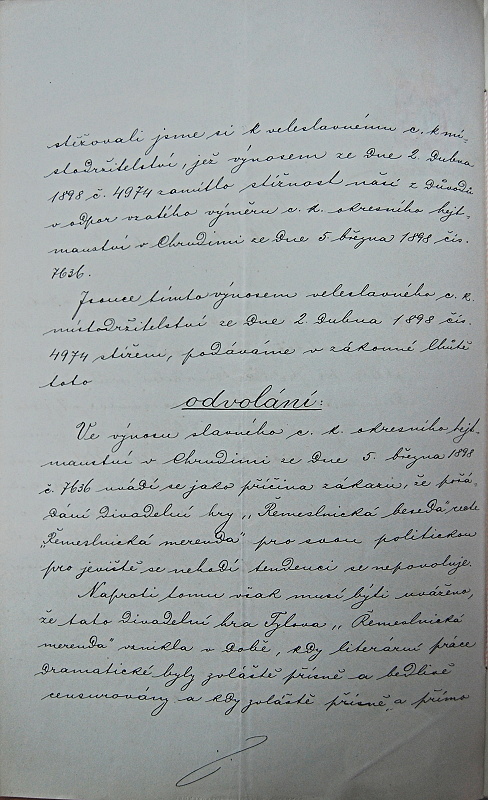 stěžovali jsme si k veleslavnému c. k mí-
stodržitelství, jež výnosem ze dne 2. dubna
1898 č. 4974 zamítlo stížnost naši z důvodů
v odpor vzatého výměru c. k. okresního hejt-
manství v Chrudimi ze dne 5 března 1898 čís.
7636.
Jsouce tímto výnosem veleslavného c. k.
místodržitelství ze dne 2. dubna 1898 čís.
4974 stíženi, podáváme v zákonné lhůtě
toto
odvolání:
Ve výnosu slavného c. k. okresního hejt-
manství v Chrudimi ze dne 5. března 1898
č. 7636 uvádí se jako příčina zákazu, že pořá-
dání divadelní hry „Řemeslnická beseda" recte
„Řemeslnická merenda" pro svou politickou
pro jeviště se nehodí tendenci se nepovoluje.
Naproti tomu však musí býti uváženo,
že tato divadelní hra Tylova „Řemeslnická
merenda" vznikla v době, kdy literární práce
dramatické byly zvláště přísně a bedlivě
censurovány a kdy zvláště přísně, a přímo